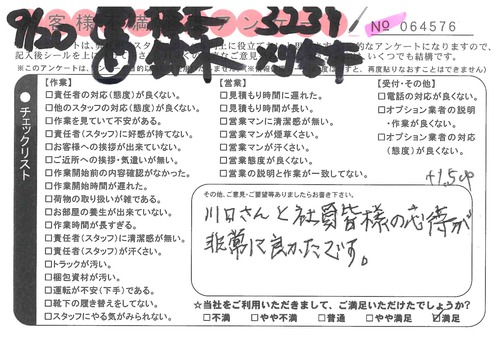 客様不満足アンケート
No 064576
9/27
3237
ートは、
的なアンケートになりますので、
記入後シールを上
いくつでも結構です。
※このアンケートは、
一度貼りつけますと、再度貼りなおすことはできません)
チェックリスト
【作業】
□責任者の対応(態度)が良くない。
□他のスタッフの対応(態度)が良くない。
□作業を見ていて不安がある。
□責任者(スタッフ)に好感が持てない。
□お客様への挨拶が出来ていない。
□ご近所への挨拶・気遣いが無い。
□作業開始前の内容確認がなかった。
□作業開始時間が遅れた。
□荷物の取り扱いが雑である。
□お部屋の養生が出来ていない。
□作業時間が長すぎる。
□責任者(スタッフ)に清潔感が無い。
□責任者(スタッフ)が汗くさい。
□トラックが汚い。
□梱包資材が汚い。
□運転が不安(下手)である。
□靴下の履き替えをしてない。
□スタッフにやる気がみられない。
【営業】
□見積もり時間に遅れた。
□見積もり時間が長い。
□営業マンに清潔感が無い。
□営業マンが煙草くさい。
□営業マンが汗くさい。
□営業態度が良くない。
□営業の説明と作業が一致してない。
【受付・その他】
□電話の対応が良くない。
□オプション業者の説明
・作業が良くない。
□オプション業者の対応
(態度)が良くない。
その他、ご意見・ご要望等ありましたらお書き下さい。
川口さんと社員皆様の応待が
非常に良かったです。
☆当社をご利用いただきまして、ご満足いただけたでしょうか?
□不満 □やや不満 □普通 □やや満足 ☑満足